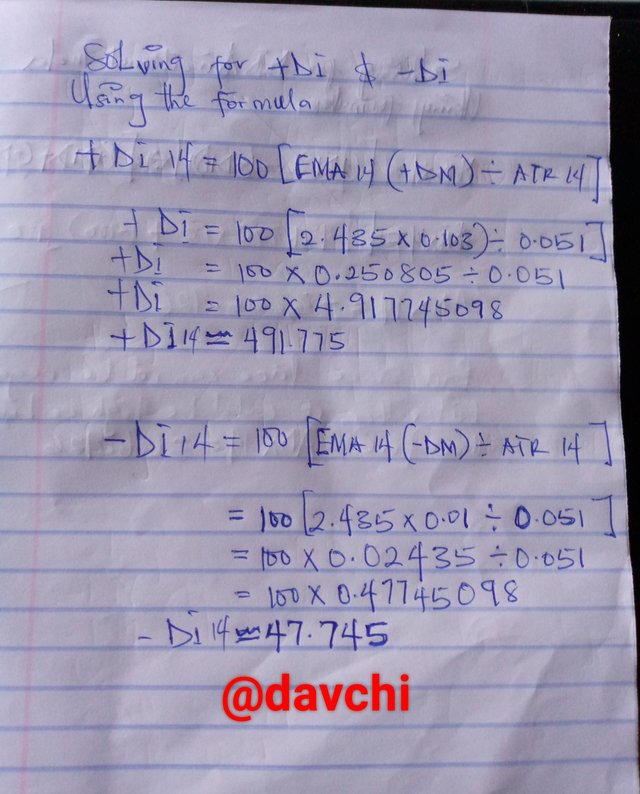 Solving for +Di & -Di
Using the formula
+ Di 14 = 100 [EMA 14 (+DM) ÷ ATR 14]
+ Di = 100 [2.435 x 0.103) ÷ 0.051]
+Di = 100 x 0.250805 ÷ 0.051
+Di = 100 x 4.917745098
+Di14 ≈ 491.775
-Di 14 = 100 [EMA 14 (-DM) ÷ ATR 14]
= 100 [2.435 x 0.01 ÷ 0.051]
= 100 x 0.02435 ÷ 0.051
= 100 x 0.47745098
- Di 14 ≈ 47.745
@davchi